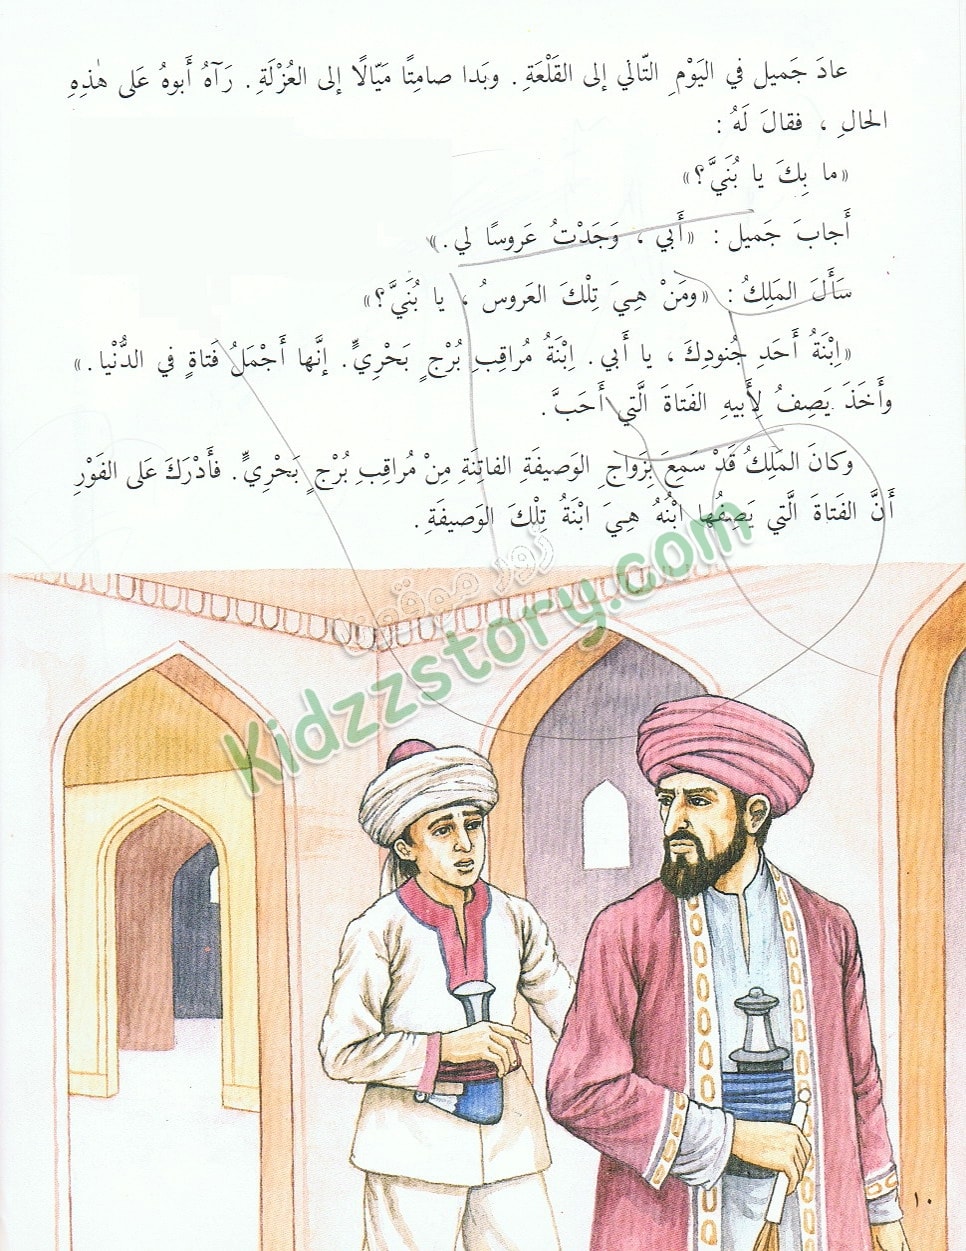 عادَ جَميل في اليَوْمِ التّالي إلى القَلْعَةِ. وبَدا صامِتًا مَيّالًا إلى العُزْلَةِ. رَآهُ أَبوهُ عَلى هٰذِهِ
الحالِ ، فقالَ لَهُ :
«ما بِكَ يا بُنَيَّ؟»
أَجابَ جَميل : «أَبي ، وَجَدْتُ عَروسًا لي.»
سَأَلَ المَلِكُ : «ومَنْ هِيَ تِلْكَ العَروسُ ، يا بُنَيَّ؟»
«اِبْنَةُ أَحَدِ جُنودِكَ ، يا أَبي. اِبْنَةُ مُراقِبِ بُرْجٍ بَحْرِيٍّ. إنَّها أَجْمَلُ فَتاةٍ في الدُّنْيا.»
وأَخَذَ يَصِفُ لِأَبيهِ الفَتاةَ الَّتي أَحَبَّ.
وكانَ المَلِكُ قَدْ سَمِعَ بِزَواجِ الوَصيفَةِ الفاتِنَةِ مِنْ مُراقِبِ بُرْجٍ بَحْرِيٍّ. فأَدْرَكَ عَلى الفَوْرِ
أَنَّ الفَتاةَ الَّتي يَصِفُها ابْنُهُ هِيَ ابْنَةُ تِلْكَ الوَصيفَةِ.
زوروا موقعنا
Kidzzstory.com
١٠